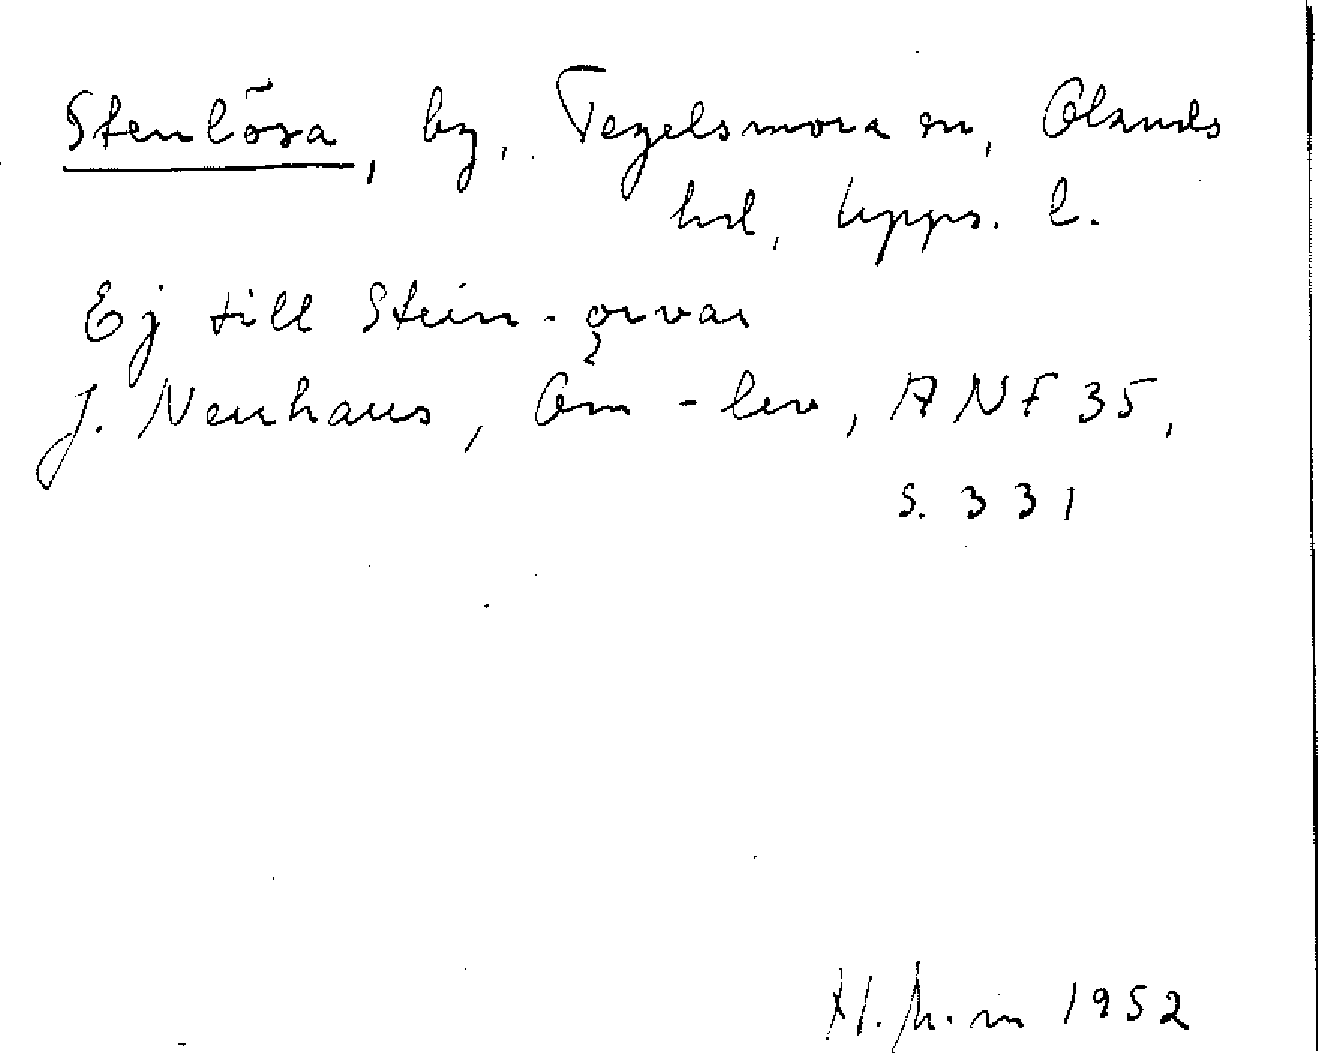 Stenlösa, by, Tegelsmora sn, Olands
hd, Upps. l.
Ej till Stein-ǫrvar
J. Neuhaus, Om -lev, ANF 35,
s. 331
1952